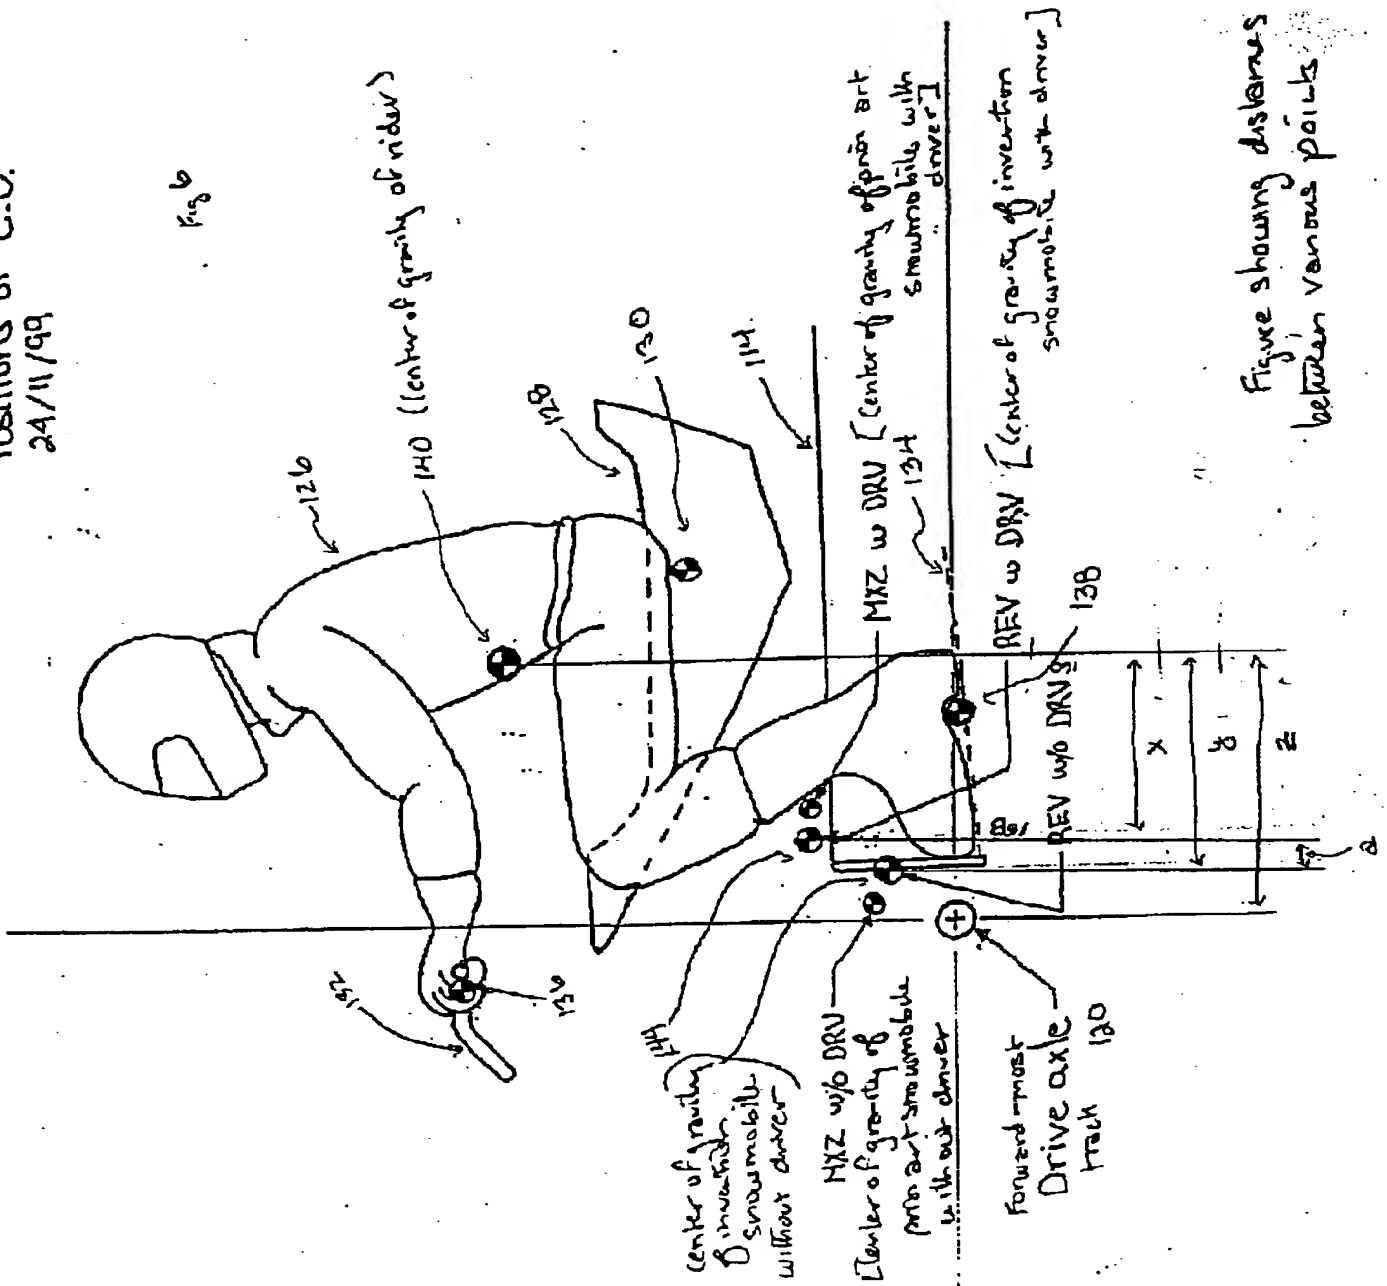 24/11/99
Fig 6
126
140 (center of gravity of rider)
128
130
114
MXZ w DRV [center of gravity of prior art
snowmobile with
driver]
134
REV w DRV [center of gravity of invention
snowmobile with driver]
138
REV w/o DRV
x
y
z
a
132
136
144
center of gravity
invention
snowmobile
without driver
MXZ w/o DRV
[center of gravity of
prior art snowmobile
without driver
Forward-most
Drive axle
track
120
Figure showing distances
between various points